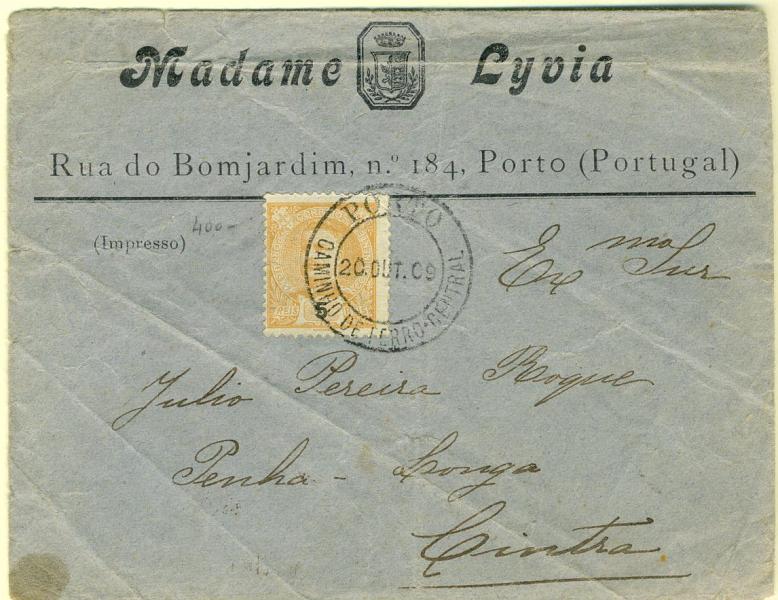 Madame Lyvia
Rua do Bomjardim, n.º 184, Porto (Portugal)
(Impresso)
400-
PORTO
20.OUT.09
CAMINHO DE FERRO-CENTRAL
REIS
5
Ex mo Snr
Julio Pereira Roque
Penha-Longa
Cintra